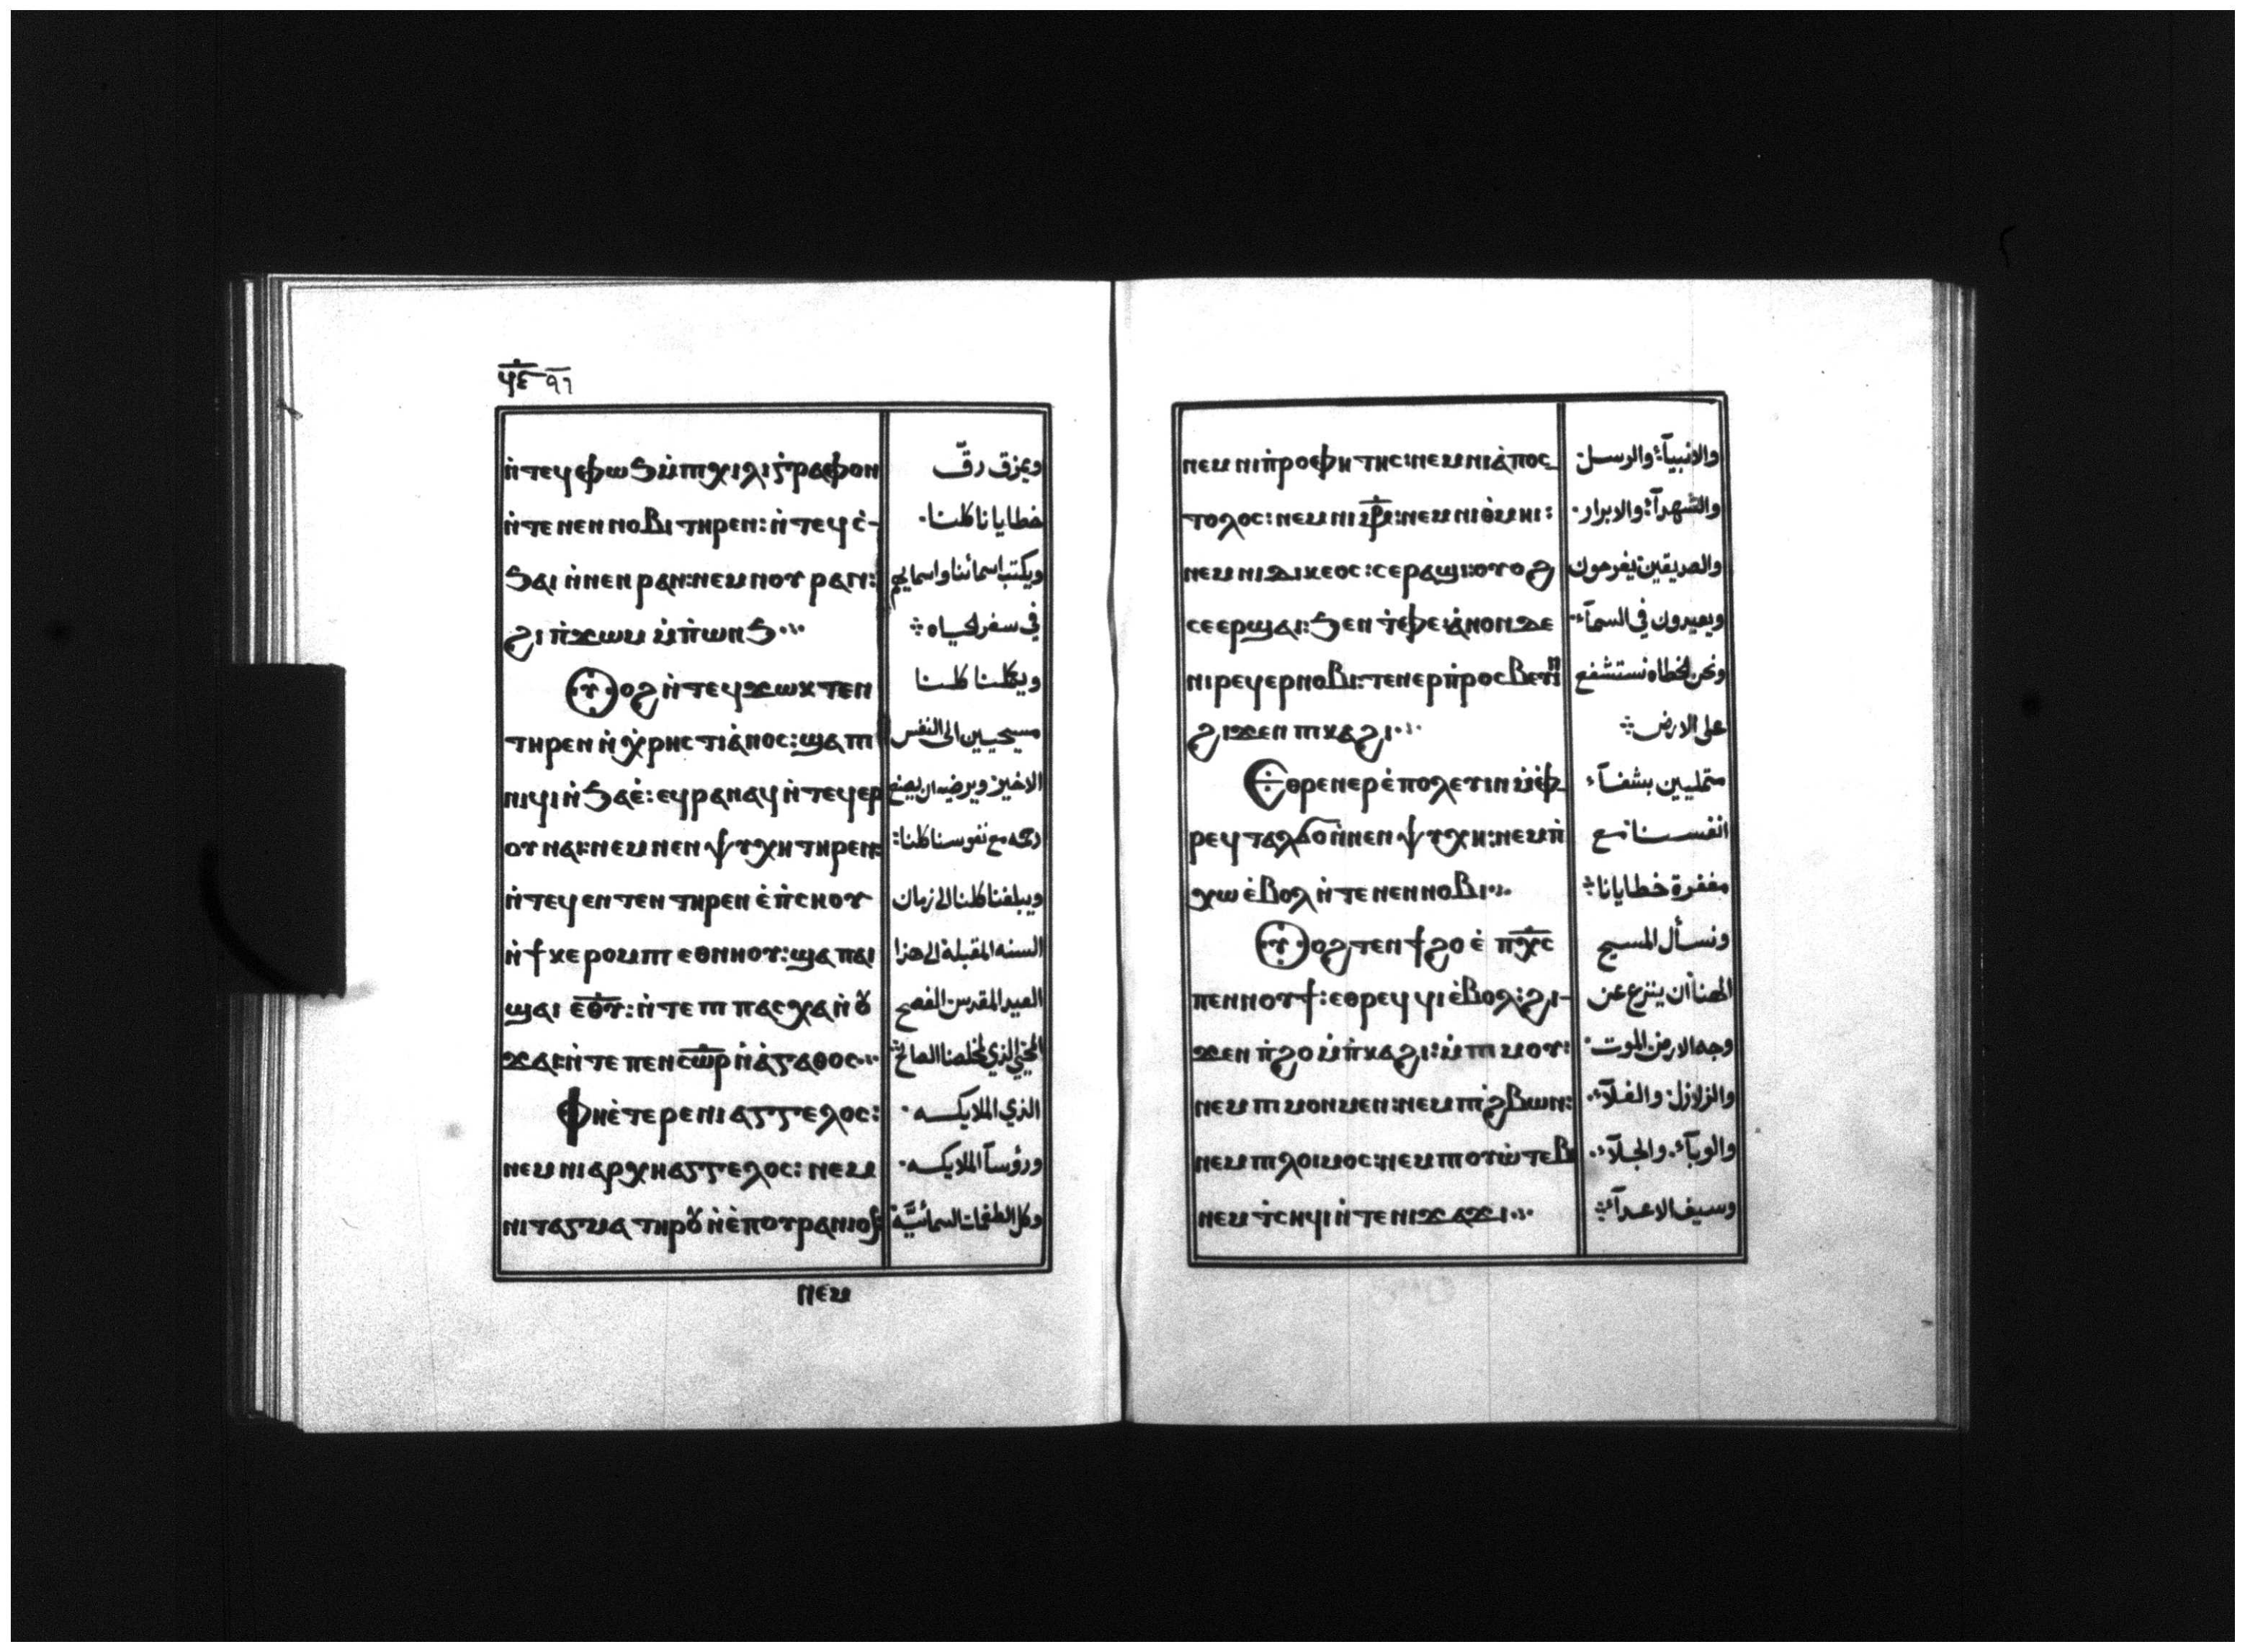 ϥ̅ⲋ̅ ٩٦
ⲛ̀ⲧⲉϥⲫⲱϧⲙ̀ⲡⲓⲭⲓⲗⲓⲅ̀ⲣⲁⲫⲟⲛ
ⲛ̀ⲧⲉⲛⲉⲛⲛⲟⲃⲓ ⲧⲏⲣⲉⲛ: ⲛ̀ⲧⲉϥⲥ̀-
ϧⲁⲓ ⲛ̀ⲛⲉⲛⲣⲁⲛ:ⲛⲉⲙⲛⲟⲩⲣⲁⲛ:
ϩⲓ ⲡ̀ϫⲱⲙ ⲙ̀ⲡ̀ⲱⲛϧ
ⲟⲩⲟϩ ⲛ̀ⲧⲉϥϫⲱⲕ ⲧⲉⲛ
ⲧⲏⲣⲉⲛ ⲛ̀ⲭ̀ⲣⲏⲥⲧⲓⲁ̀ⲛⲟⲥ:ϣⲁⲡⲓ
ⲛⲓϥⲓⲛ̀ϧⲁⲉ̀:ⲉϥⲣⲁⲛⲁϥ ⲛ̀ⲧⲉϥⲉⲣ
ⲟⲩⲛⲁⲓ:ⲛⲉⲙⲛⲉⲛⲯⲩⲭⲏ ⲧⲏⲣⲉⲛ:
ⲛ̀ⲧⲉϥⲉⲛⲧⲉⲛ ⲧⲏⲣⲉⲛ ⲉ̀ⲡ̀ⲥⲏⲟⲩ
ⲛ̀ϯⲕⲉⲣⲟⲙⲡⲓ ⲉⲑⲛⲏⲟⲩ:ϣⲁⲡⲁⲓ
ϣⲁⲓ ⲉ̅ⲑ̅ⲩ̅:ⲛ̀ⲧⲉⲡⲓⲡⲁⲥⲭⲁⲛ̀ⲟⲩ
ϫⲁⲓ:ⲛ̀ⲧⲉ ⲡⲉⲛⲥ̅ⲱ̅ⲣ̅ ⲛ̀ⲁ̀ⲅⲁⲑⲟⲥ
Ⲫⲏⲉ̀ⲧⲉⲣⲉⲛⲓⲁⲅⲅⲉⲗⲟⲥ:
ⲛⲉⲙⲛⲓⲁⲣⲭⲏⲁⲅⲅⲉⲗⲟⲥ: ⲛⲉⲙ
ⲛⲓⲧⲁⲅⲙⲁ ⲧⲏⲣⲟⲩ ⲛ̀ⲉ̀ⲡⲟⲩⲣⲁⲛⲓⲟⲛ
ويمزق رقّ
خطايانا كلنا.
ويكتب اسمائنا واسمايهم
في سفر الحياه
ويكملنا كلنا
مسيحيين الى النفس
الاخيرة ويرضيه ان يصنع
رحمه مع نفوسنا كلنا:
ويبلغنا كلنا الى زمان
السنه المقبلة الى هذا
العيد المقدس الفصح
المحيي الذي لمخلصنا الصالح
الذي الملايكه.
ورؤسآ الملايكه.
وكل الطغمات السمائيّة
ⲛⲉⲙ
ⲛⲉⲙ ⲛⲓⲡ̀ⲣⲟⲫⲏⲧⲏⲥ:ⲛⲉⲙⲛⲓⲁ̀ⲡⲟⲥ-
ⲧⲟⲗⲟⲥ:ⲛⲉⲙⲛⲓⲙ̅ⲣ̅:ⲛⲉⲙⲛⲓⲑ̀ⲙⲏⲓ:
ⲛⲉⲙⲛⲓⲇⲓⲕⲉⲟⲥ:ⲥⲉⲣⲁϣⲓ:ⲟⲩⲟϩ
ⲥⲉⲉⲣϣⲁⲓ:ϧⲉⲛ ⲧ̀ⲫⲉ:ⲁ̀ⲛⲟⲛⲇⲉ
ⲛⲓⲣⲉϥⲉⲣⲛⲟⲃⲓ:ⲧⲉⲛⲉⲣⲡ̀ⲣⲟⲥⲃⲉⲩⲓⲛ
ϩⲓϫⲉⲛ ⲡⲓⲕⲁϩⲓ
Ⲉⲑⲣⲉⲛⲉⲣⲉ̀ⲡⲟⲗⲉⲩⲓⲛ ⲙ̀ⲫ̀-
ⲣⲉϥⲧⲁⲗϭⲟⲛ̀ⲛⲉⲛⲯⲩⲭⲏ:ⲛⲉⲙⲡ̀
ⲭⲱ ⲉ̀ⲃⲟⲗ ⲛ̀ⲧⲉ ⲛⲉⲛⲛⲟⲃⲓ
ⲟⲩⲟϩ ⲧⲉⲛϯϩⲟ ⲉ̀ ⲡ̅ⲭ̅ⲥ̅
ⲡⲉⲛⲛⲟⲩϯ:ⲉⲑⲣⲉϥϥⲓⲉ̀ⲃⲟⲗ:ϩⲓ-
ϫⲉⲛ ⲡ̀ϩⲟ ⲙ̀ⲡ̀ⲕⲁϩⲓ:ⲙ̀ⲡⲓⲙⲟⲩ:
ⲛⲉⲙ ⲡⲓⲙⲟⲛⲙⲉⲛ:ⲛⲉⲙⲡⲓϩ̀ⲃⲱⲛ:
ⲛⲉⲙ ⲡⲓⲗⲟⲓⲙⲟⲥ:ⲛⲉⲙⲡⲓⲟⲩⲱ̀ⲧⲉⲃ
ⲛⲉⲙ ⲧ̀ⲥⲏϥⲓ ⲛ̀ⲧⲉ ⲛⲓϫⲁϫⲓ
والانبيآء: والرسل:
والشهدآء: والابرار.
والصديقين يفرحون
ويعيدون في السمآء.
ونحن الخطاه نستشفع
على الارض
متمليين بشفآء
انفسنا: مع
مغفرة خطايانا
ونسأل المسيح
الهنا أن ينزع عن
وجه الارض الموت.
والزلازل: والغلآء.
والوبآء. والجلآء.
وسيف الاعدآء